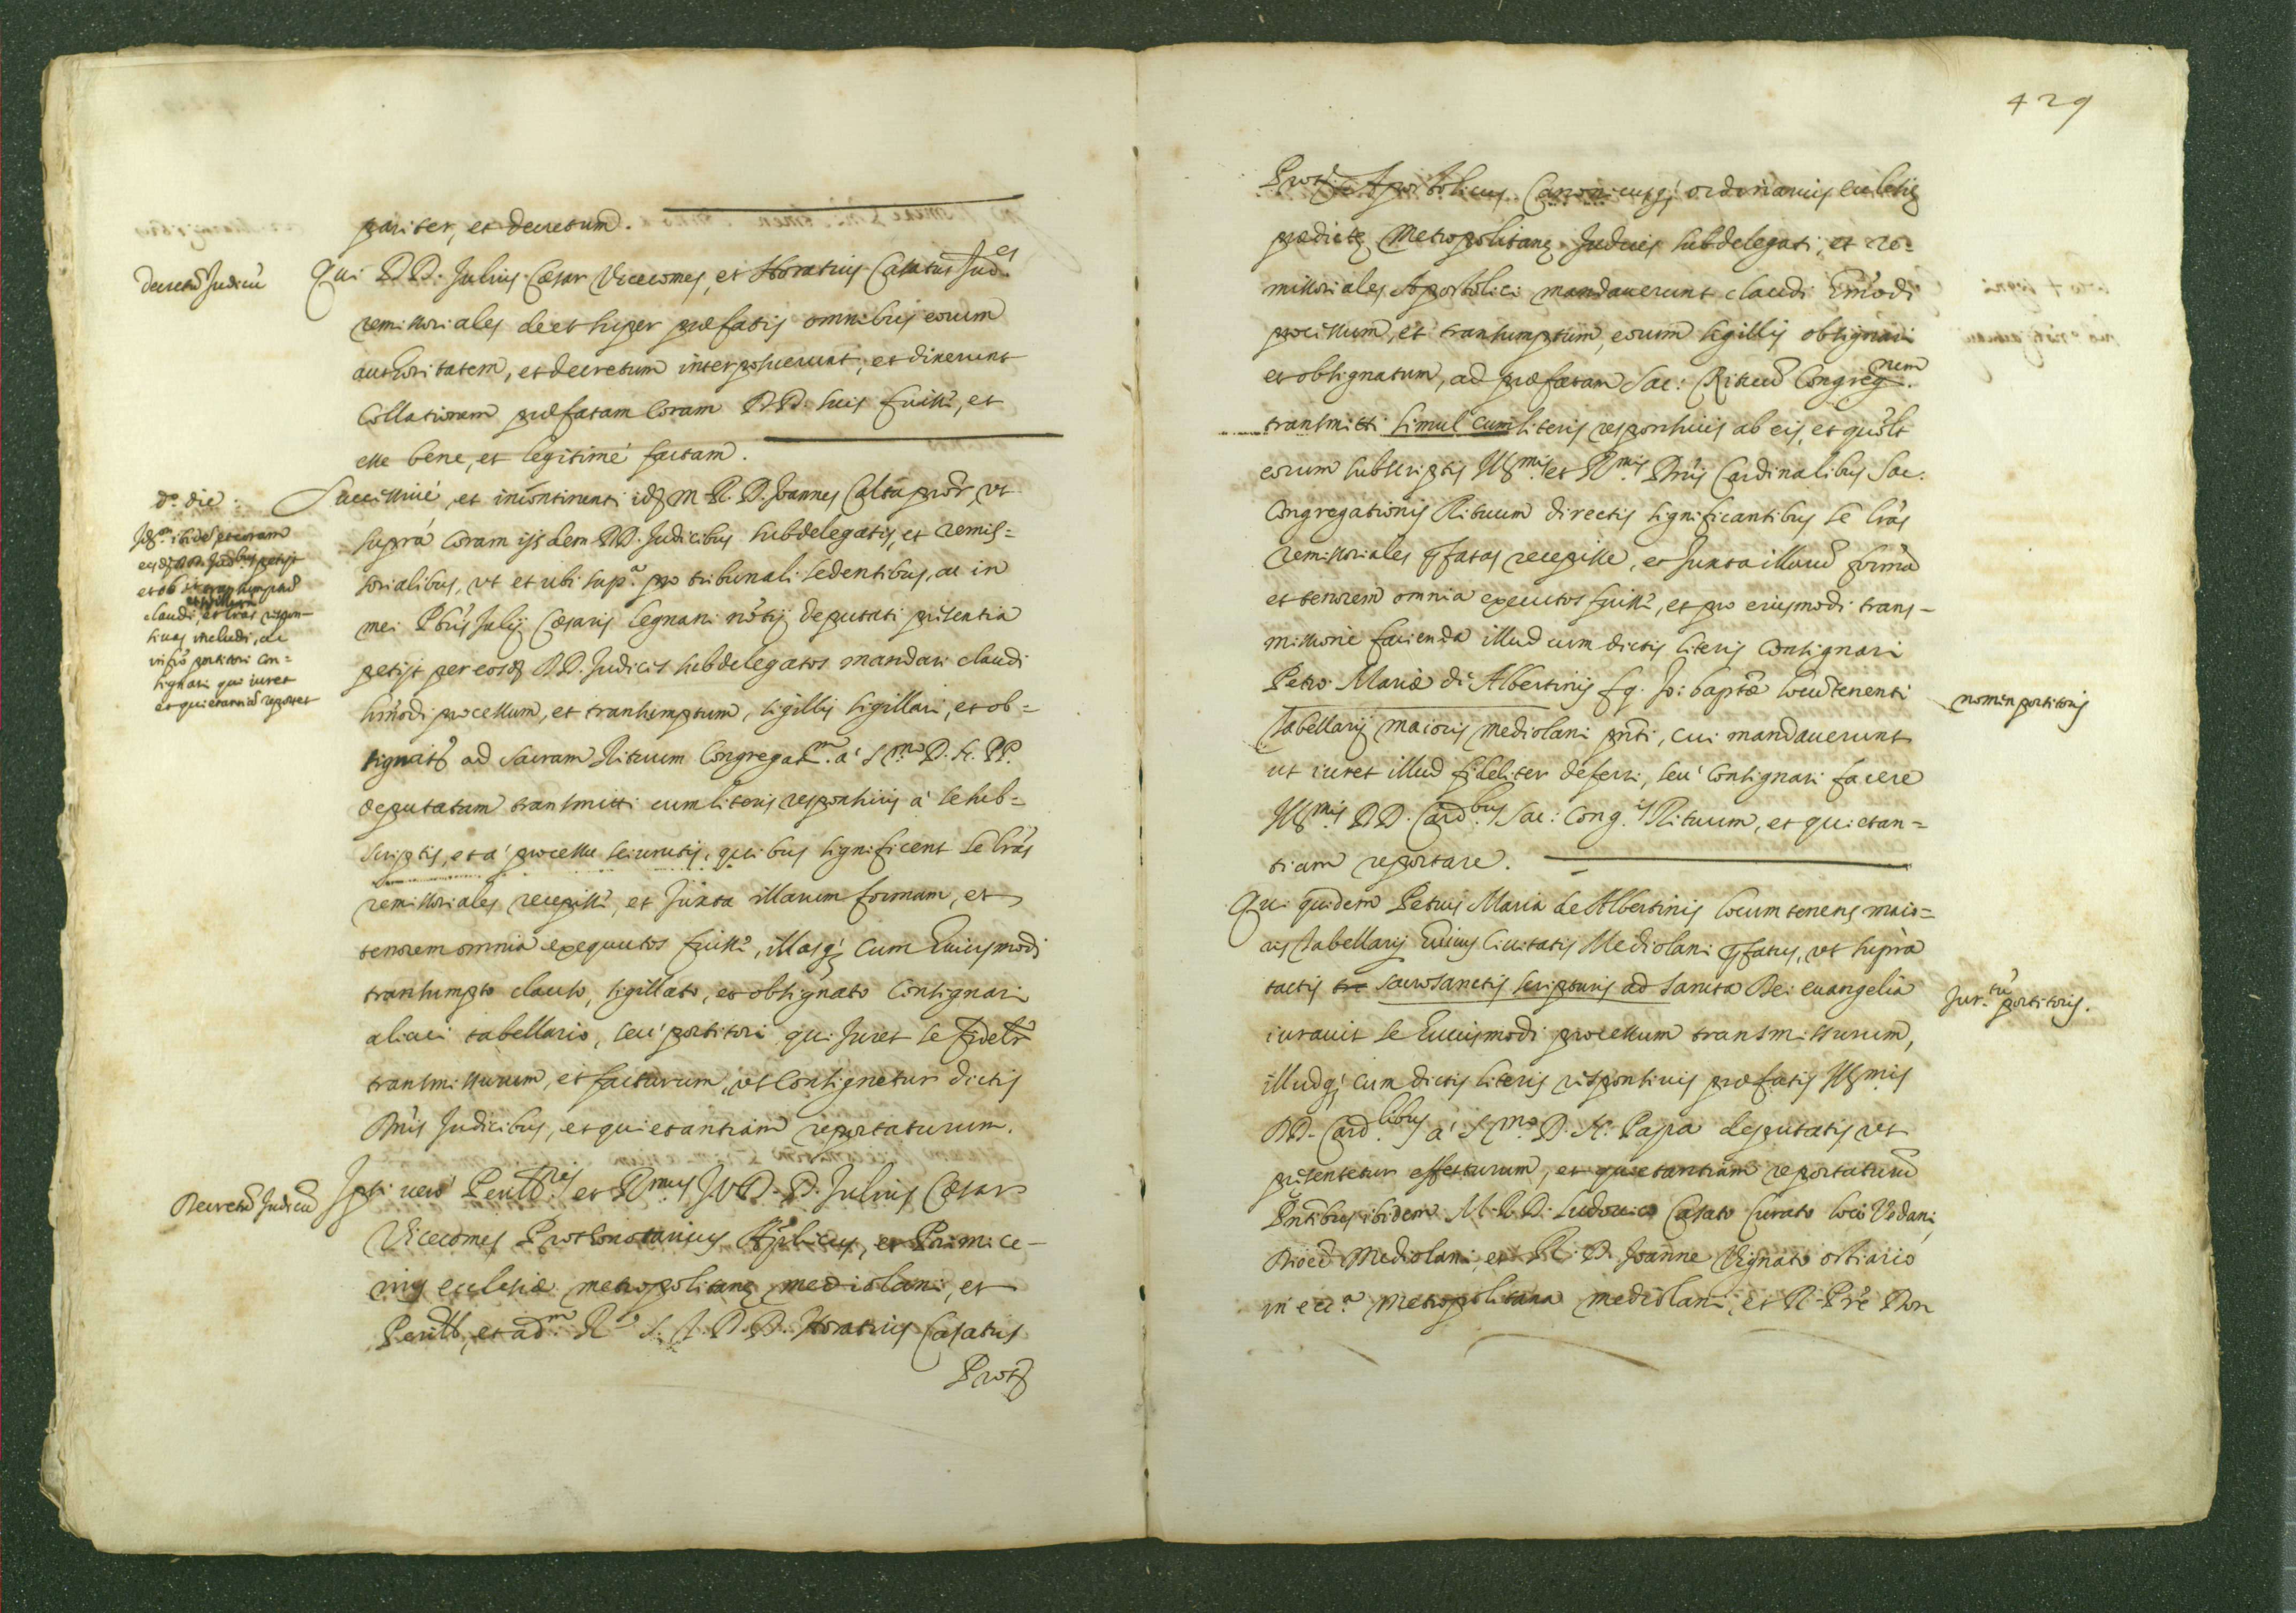 pariter, et decretum.
decretũ Judicũ
Qui DD. Julius Cæsar Vicecomes, et Horatius Casatus Jud.es
remissoriales de et super præfatis omnibus eorum
authoritatem, et decretum interposuerunt, et dixerunt
Collationem præfatam Coram DD. suis fuisse, et
esse bene, et legitimé factam.
d.a die
Successivé, et incontinenti idẽ M. R. D. Joannes Calta
supra Coram ijsdem DD. Judicibus subdelegatis, et remis=
sorialibus, vt et ubi sup.a pro tribunali sedentibus, ac in
mei Pbri Julij Cæsaris Legnani notij deputati presentia
petijt per eosdẽ DD. Judices subdelegatos mandari claudi
hmodi processum, et transumptum, sigillis sigillari, et ob=
signatũ ad Sacram Rituum Congregat.m à S.mo D. N. PP.
deputatam transmitti cum literis responsiuis à se sub=
scriptis, et à processu seiunctis, quibus significent se lrãs
remissoriales recepisse, et Juxta illarum formam, et
tenorem omnia exequutos fuisse, illasq; Cum huiusmodi
transumpto clauso, sigillato, et obsignato Consignari
alicui tabellario, seu portitori qui Juret se fidelr
transmissurum, et facturum, vt Consignetur dictis
Dnis Judicibus, et quietantiam reportaturum.
claudi, et lras respon=
siuas includi, ac
infro portitori con=
signari qui iuret
et quietantiã reportet
Decretũ Judicũ
Ipsi uero Perill.res et R.mus J V D. D. Julius Cæsar
Vicecomes Prothonotarius Aplicus, et Primice-
rius ecclesiæ metropolitanę mediolani, et
Perill. et ad.m R. J. V. D. D. Horatius Casatus
Prot.
429
Prot. Apostolicus Canonicusq; ordinarius ecclesię
prædictę Metropolitanę Judices subdelegati, et re=
missoriales Apostolici mandauerunt claudi hmõdi
processum, et transumptum, eorum sigillis obsignari
et obsignatum, ad præfatam Sac: Rituũ Congreg.nem
transmitti simul cum literis responsiuis ab eis, et
eorum subscriptis Ill.mis et R.mis Dnis Cardinalibus Sac.
Congregationis Rituum directis significantibus se lrãs
remissoriales pfatas recepisse, et Juxta illarũ formã
et tenorem omnia executos fuisse, et pro eiusmodi trans-
missione facienda illud cum dictis literis Consignari
Petro Mariæ de Albertinis fq. Jo: baptæ locũtenenti
nomen portitoris
Tabellarij maioris mediolani pnti, cui mandauerunt
ut iuret illud fideliter deferri, seu Consignari facere
Ill.mis DD. Card.bus Sac: Cong.is Rituum, et quietan=
tiam reportare.
Qui quidem Petrus Maria de Albertinis locum tenens maio=
ris Tabellarij huius Ciuitatis Mediolani pfatus, vt supra
tactis sacrosanctis scripturis ad sancta Dei euangelia
Jur.tũ portitoris.
iurauit se huiusmodi processum transmissurum,
illudq; cum dictis literis responsiuis præfatis Ill.mis
DD. Card.libus à S.mo D. N. Papa deputatis vt
presentetur effecturum, et quietantiam reportaturũ
Pntibus ibidem M. R. D. Ludouico Casato Curato loci Vedani,
Dioec. Mediolani, et R. D. Joanne Vignato ostiario
in ecc.a metropolitana mediolani, et R. Prẽ Don